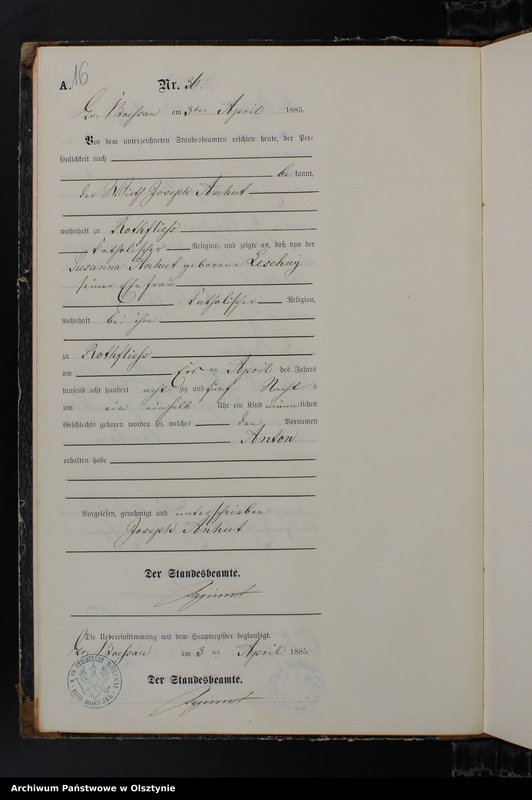 A. 16 Nr. 36.
Gr. Boessau am 3ten April 1885.
Vor dem unterzeichneten Standesbeamten erschien heute, der Per-
sönlichkeit nach
be kannt,
der Wirth Joseph Anhut
wohnhaft zu Rothfließ
katholischer Religion, und zeigte an, daß von der
Susanna Anhut geborene Leschny
seiner Ehefrau
katholischer Religion,
wohnhaft bei ihm
zu Rothfließ
am April des Jahres
tausend acht hundert acht zig und fünf Nachts
um ein einhalb Uhr ein Kind männlichen
Geschlechts geboren worden sei, welches den Vornamen
Anton
erhalten habe
Vorgelesen, genehmigt und unterschrieben
Joseph Anhut
Der Standesbeamte.
Die Uebereinstimmung mit dem Hauptregister beglaubigt.
Gr. Boessau am 3ten April 1885.
Der Standesbeamte.
Archiwum Państwowe w Olsztynie